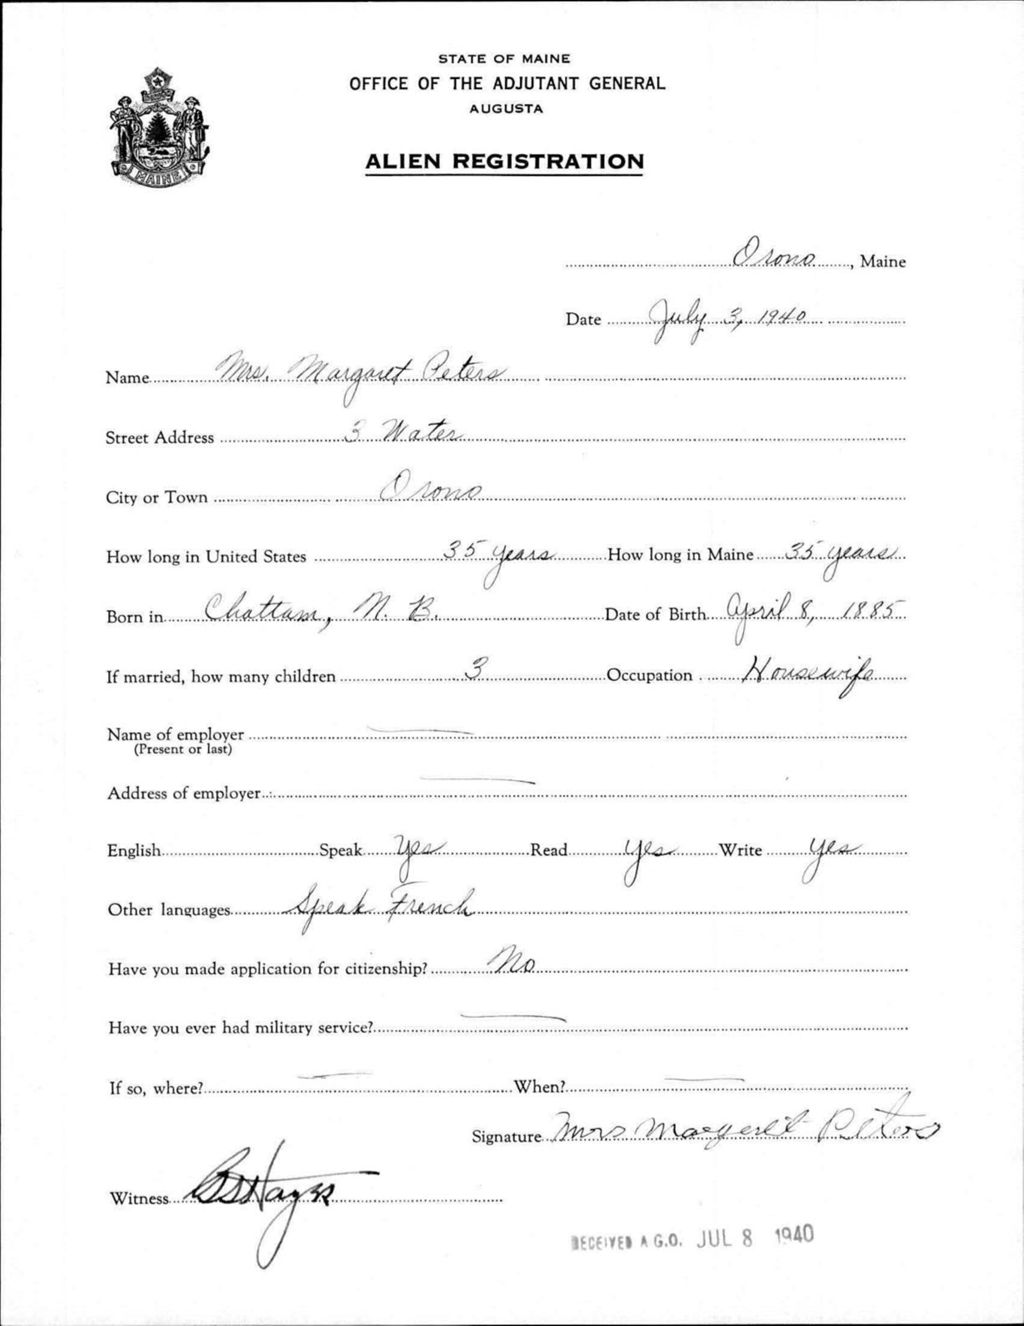 STATE OF MAINE
OFFICE OF THE ADJUTANT GENERAL
AUGUSTA
ALIEN REGISTRATION
MAINE
Orono, Maine
Date July 3, 1940
Name Mrs. Margaret Peters
Street Address 3 Water
City or Town Orono
How long in United States 35 years How long in Maine 35 years
Born in Chattam, N. B. Date of Birth April 8, 1885
If married, how many children 3 Occupation Housewife
Name of employer
(Present or last)
Address of employer
English Speak Yes Read Yes Write Yes
Other languages Speak French
Have you made application for citizenship? No
Have you ever had military service?
If so, where? When?
Signature Mrs Margeret Peters
Witness
RECEIVED A.G.O. JUL 8 1940